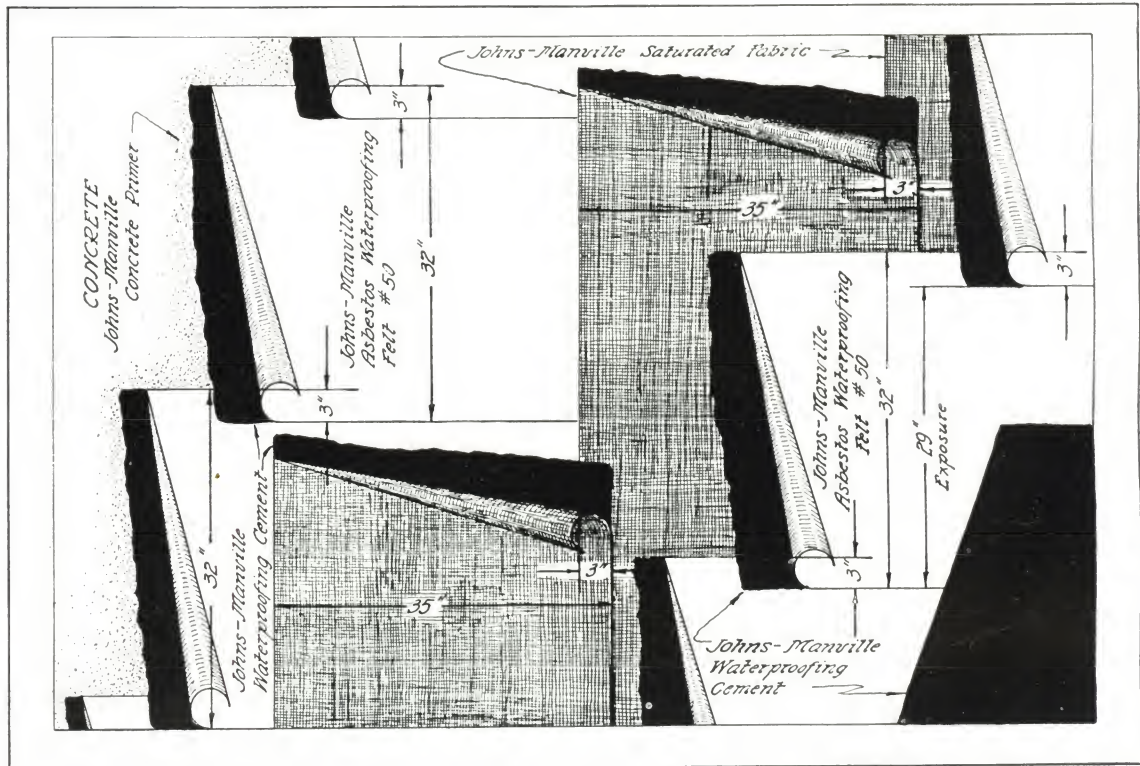 Johns-Manville Saturated Fabric
CONCRETE
Johns-Manville
Concrete Primer
3"
32"
Johns-Manville
Asbestos Waterproofing
Felt #50
3"
3"
35"
3"
Johns-Manville
Asbestos Waterproofing
Felt #50
32"
29"
Exposure
3"
32"
Johns-Manville
Waterproofing Cement
3"
35"
Johns-Manville
Waterproofing
Cement